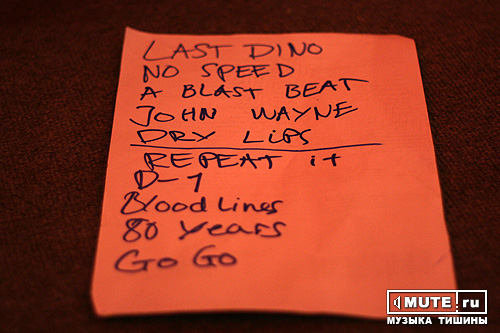 LAST DINO
NO SPEED
A BLAST BEAT
JOHN WAYNE
DRY LiPS
REPEAT it
D-1
Blood Lines
80 Years
GO GO
MUTE.ru
МУЗЫКА ТИШИНЫ